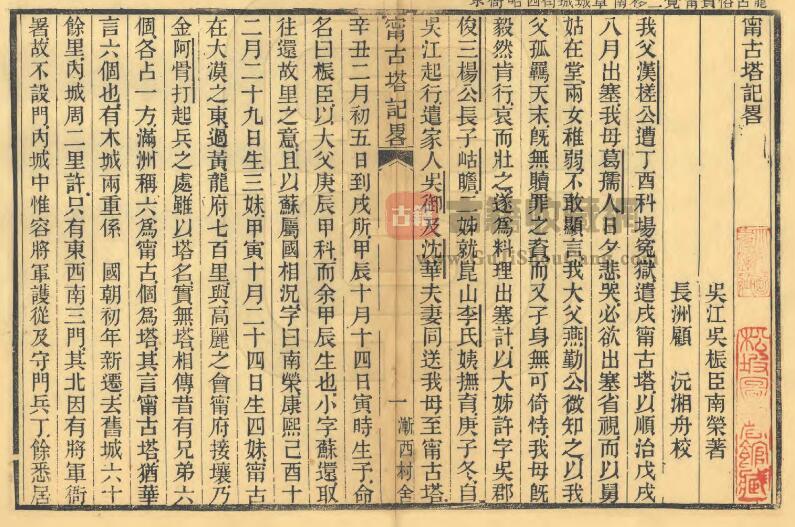 甯古塔記畧
吳江吳桭臣南榮著
長洲顧　沅湘舟校
我父漢槎公遭丁酉科塲寃獄遣戌甯古塔以順治戊戌
八月出塞我母葛孺人日夕悲哭必欲出塞省視而以舅
姑在堂兩女稚弱不敢顯言我大父燕勤公微知之以我
父孤羈天末旣無贖罪之資而又子身無可倚恃我母旣
毅然肯行哀而壯之遂爲料理出塞計以大姊許字吳郡
俊三楊公長子岵瞻二姊就崑山李氏姨撫育庚子冬自
吳江起行遣家人吳御及沈華夫妻同送我母至甯古塔
甯古塔記畧
一
漸西村舍
辛丑二月初五日到戌所甲辰十月十四日寅時生予命
名曰桭臣以大父庚辰甲科而余甲辰生也小字蘇還取
往還故里之意且以蘇屬國相況字曰南榮康熙己酉十
二月二十九日生三妹甲寅十月二十四日生四妹甯古
在大漠之東過黃龍府七百里與高麗之會甯府接壤乃
金阿骨打起兵之處雖以塔名實無塔相傳昔有兄弟六
個各占一方滿洲稱六爲甯古個爲塔其言甯古塔猶華
言六個也有木城兩重係　國朝初年新遷去舊城六十
餘里內城周二里許只有東西南三門其北因有將軍衙
署故不設門內城中惟容將軍護從及守門兵丁餘悉居
古籍
古籍收藏網
www.GuJiShouCang.com